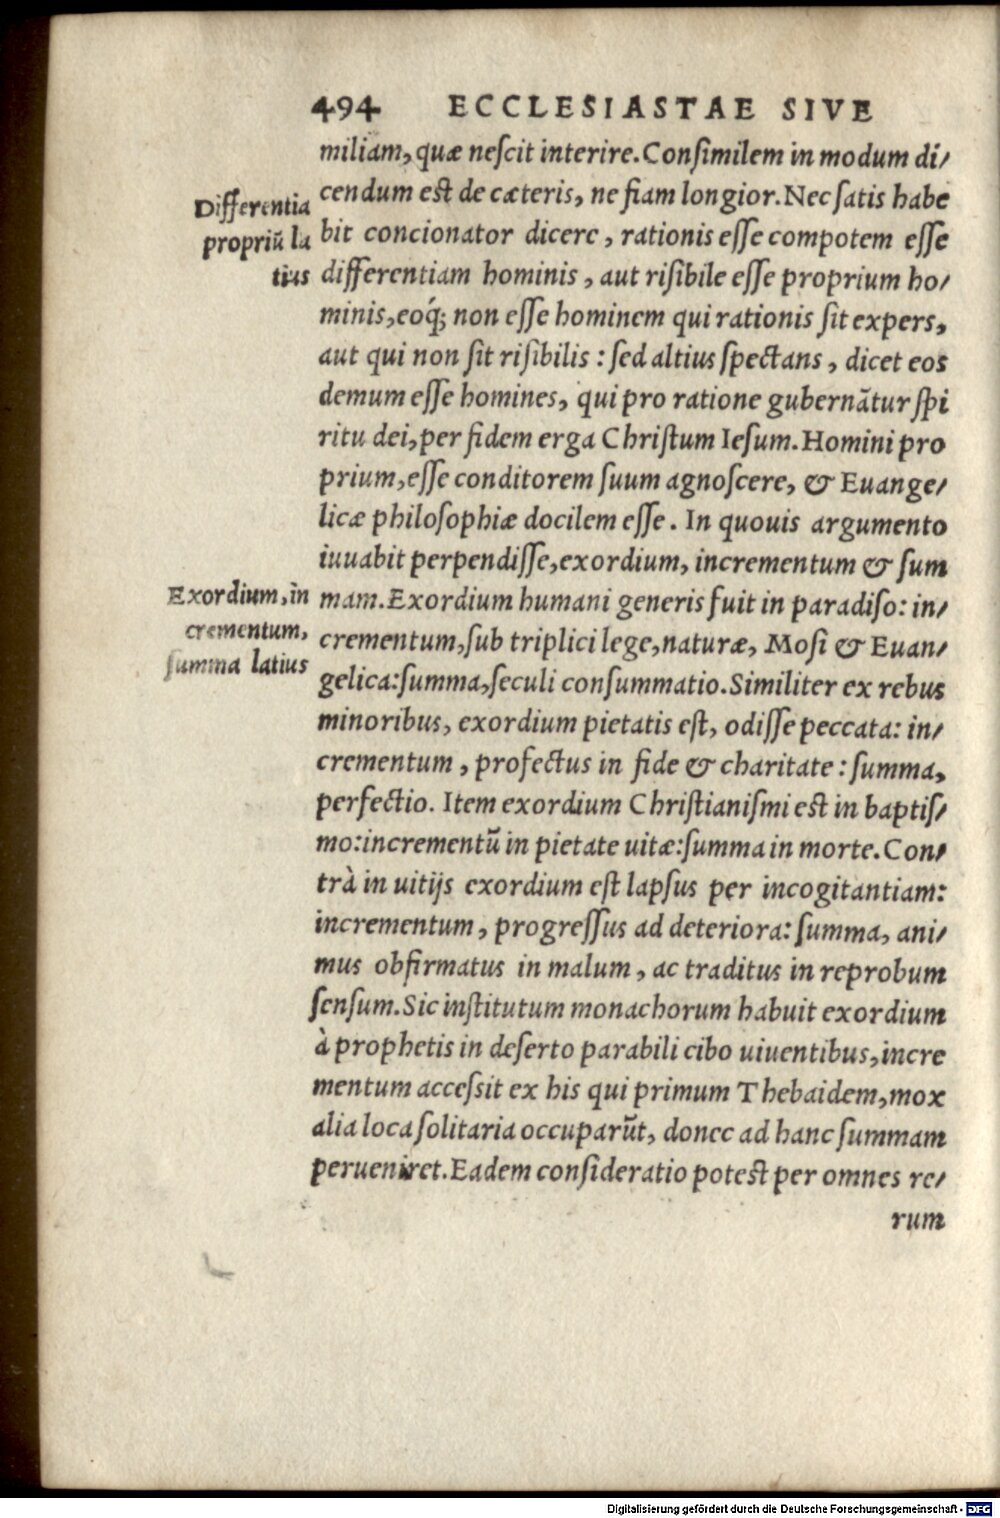 494 ECCLESIASTAE SIVE
miliam, quæ neſcit interire. Conſimilem in modum di/
cendum eſt de cæteris, ne fiam longior. Nec ſatis habe
bit concionator dicere, rationis eſſe compotem eſſe
differentiam hominis, aut riſibile eſſe proprium ho/
minis, eoq́; non eſſe hominem qui rationis ſit expers,
aut qui non ſit riſibilis: ſed altius ſpectans, dicet eos
demum eſſe homines, qui pro ratione gubernãtur ſpi
ritu dei, per fidem erga Chriſtum Ieſum. Homini pro
prium, eſſe conditorem ſuum agnoſcere, & Euange/
licæ philoſophiæ docilem eſſe. In quouis argumento
iuuabit perpendiſſe, exordium, incrementum & ſum
mam. Exordium humani generis fuit in paradiſo: in/
crementum, ſub triplici lege, naturæ, Moſi & Euan/
gelica: ſumma, ſeculi conſummatio. Similiter ex rebus
minoribus, exordium pietatis eſt, odiſſe peccata: in/
crementum, profectus in fide & charitate: ſumma,
perfectio. Item exordium Chriſtianiſmi eſt in baptiſ/
mo: incrementũ in pietate uitæ: ſumma in morte. Con/
trà in uitijs exordium eſt lapſus per incogitantiam:
incrementum, progreſſus ad deteriora: ſumma, ani/
mus obfirmatus in malum, ac traditus in reprobum
ſenſum. Sic inſtitutum monachorum habuit exordium
à prophetis in deſerto parabili cibo uiuentibus, incre
mentum acceſsit ex his qui primum Thebaidem, mox
alia loca ſolitaria occuparũt, donec ad hanc ſummam
perueniret. Eadem conſideratio poteſt per omnes re/
rum
Differentia
propriũ la
tius
Exordium, in
crementum,
ſumma latius
Digitalisierung gefördert durch die Deutsche Forschungsgemeinschaft - DFG